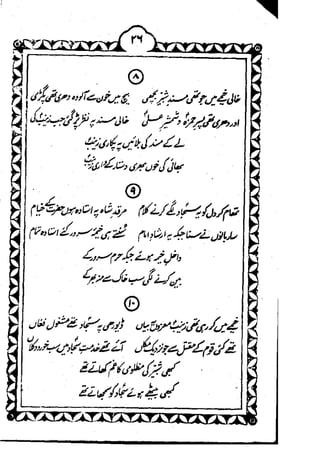 ۲۶
۸
خالی خیمے میں جو تھی مسندِ شبیرؑ بچھی
بیچ میں خون سے آلودہ دھری تھی پگڑی
اور دھری تھی سپرِ حمزہ و شمشیرِ علیؑ
خالی مسند پہ نظر پڑ گئی جب زینبؑ کی
لے کے مسند کی بلائیں یہ پکاری زینبؑ
بھائی کی خوں بھری دستار کے واری زینبؑ
۹
تھام کر دل کو یہ سجادؑ لگے کرنے کلام
مرقدِ شاہ پہ استادہ ہوں حضرت کے خیام
ساربانوں نے سنا جبکہ یہ ارشادِ امام
سنتے ہی خیمے سرور کے استادہ تمام
داخلِ خیمہ ہوئے جبکہ حرم سرور کے
بین کرنے لگی سب خاک پہ
۱۰
خیمے میں کر رہی تھی زینبؑ معزوں بیاں
ڈیوڑھی پہ سجادؑ تھے مشغولِ فغاں
تھے کئی قوم کے مقتل سے جو نزدیک مکاں
آئے تھے خدمتِ سجادؑ میں سب خورد و کلاں
کبھی شبیرؑ کی مظلومی کا غم کھاتے تھے
کبھی بیٹھے ہوئے سجادؑ کو سمجھاتے تھے